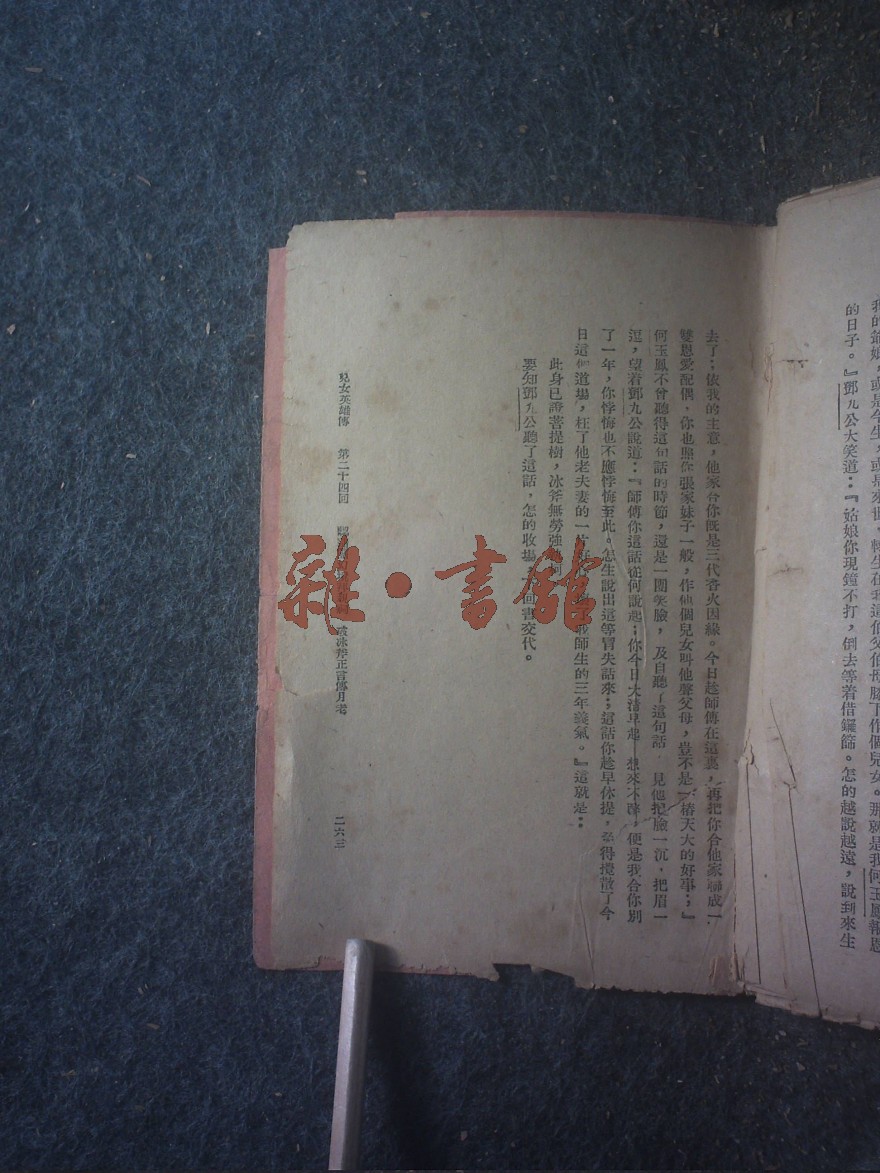 我的爺娘，或是今生，或是來世，轉生在我這伯父伯母膝下作個兒女。那就是我何玉鳳報恩
的日子。』鄧九公大笑道：『姑娘你現鐘不打，倒去等着借鑼篩。怎的越說越遠，說到來生
去了；依我的主意，他家合你既是三代香火因緣。今日趁師傅在這裏，再把你合他家聯成一
雙恩愛配偶，你也照你張家妹子一般，作他個兒女叫他聲父母，豈不是一樁天大的好事；』
何玉鳳不曾聽得這句話的時節，還是一團笑臉，及自聽了這句話 見他把臉一沉，把眉一
逗，望着鄧九公說道：『師傅你這話從何說起；你今日大清早起 想來不醉，便是我合你別
了一年，你悖悔也不應悖悔至此。怎生說出這等冒失話來；這話你趁早休提，免得攪散了今
日這個道場，枉了他老夫妻的一片 師生的三年義氣。』這就是：
此身已證菩提樹，冰斧無勞強
要知鄧九公聽了這話，怎的收場 回書交代。
兒女英雄傳 第二十四回 冰斧正言傳月老 二六三
雜·書館